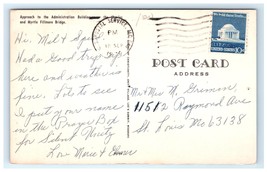 Approach to the Administration Building
and Myrtle Fillmore Bridge.
PM
POST CARD
ADDRESS
10c
Hi. Mel &
Had a Good trip
here and weather is
fine. Like to see
I put your name
in the Prayer Box
for Silent Unity
Love Marie &
Mr & Mrs N.
11512 Raymond Ave
St. Louis Mo 63138